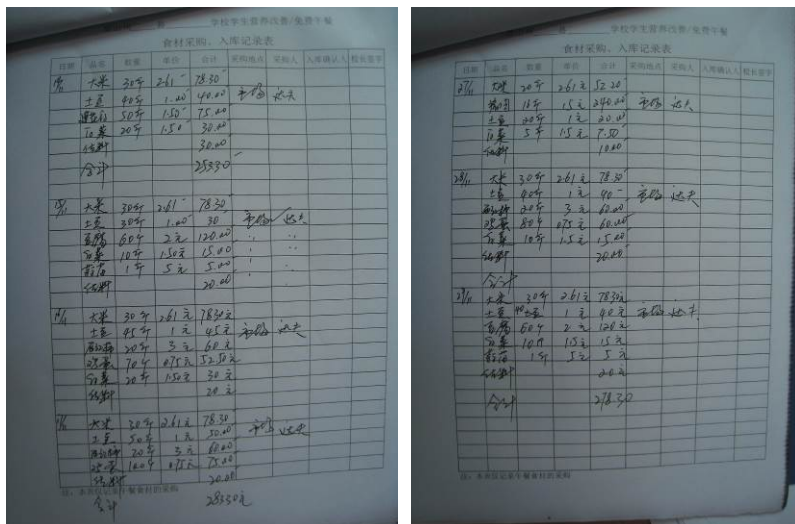 学校学生营养改善/免费午餐
食材采购、入库记录表
日期 品名 数量 单价 合计 采购地点 采购人 入库确认人 校长签字
大米 30斤 2.61 78.30
土豆 40斤 1.00 40.00 市场 达夫
50斤 1.50 75.00
白菜 20斤 1.50 30.00
佐料 30.00
合计 253.30
大米 30斤 2.61 78.30
土豆 30斤 1.00 30 市场 达夫
豆腐 60斤 2元 120.00
白菜 10斤 1.50元 15.00
1斤 5元 5.00
佐料 20.00
大米 30斤 2.61元 78.30元
土豆 45斤 1元 45元 市场 达夫
20斤 3元 60元
鸡蛋 70个 0.75元 52.50元
白菜 20斤 1.50元 30元
佐料 20元
大米 30斤 2.61元 78.30
土豆 50斤 1元 50.00 市场 达夫
20斤 3元 60.00
鸡蛋 100个 0.75元 75.00
佐料 20.00
注：本表仅记录午餐食材的采购
合计 283.30元
学校学生营养改善/免费午餐
食材采购、入库记录表
日期 品名 数量 单价 合计 采购地点 采购人 入库确认人 校长签字
27/11 大米 20斤 2.61元 52.20
16斤 15元 240.00 市场 达夫
土豆 20斤 1元 20.00
白菜 5斤 1.5元 7.50
佐料 10.00
28/11 大米 30斤 2.61元 78.30
土豆 40斤 1元 40 市场 达夫
20斤 3元 60.00
鸡蛋 80个 0.75元 60.00
白菜 10斤 1.5元 15.00
佐料 20.00
合计
29/11 大米 30斤 2.61元 78.30元
土豆 40 1元 40元 市场 达夫
豆腐 60斤 2元 120元
白菜 10斤 1.5元 15元
1斤 5元 5元
佐料 20元
合计 278.30
注：本表仅记录午餐食材的采购